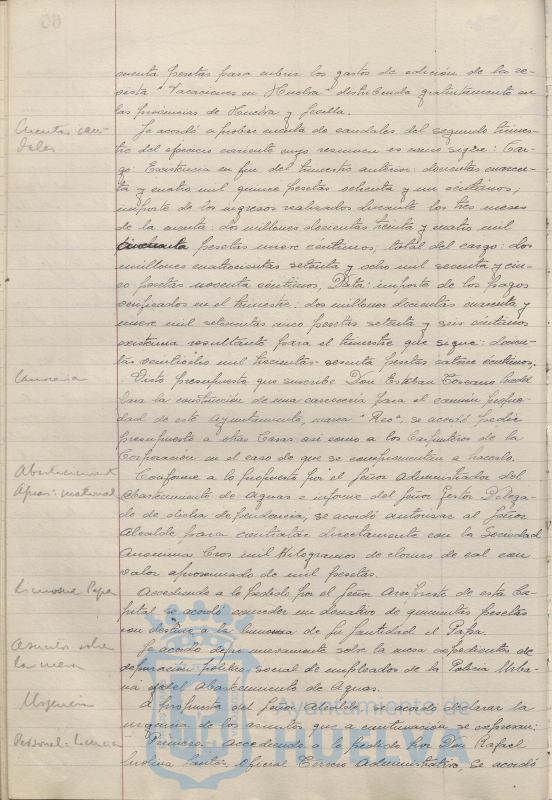 cuenta pesetas para cubrir los gastos de edición de la re-
vista "Vacaciones en Huelva" distribuida gratuitamente en
las provincias de Huelva y Sevilla.
Cuentas cau-
dales
Se acordó aprobar cuenta de caudales del segundo trimes-
tre del ejercicio corriente cuyo resumen es como sigue: Car-
go: Existencia en fin del trimestre anterior: doscientas cuaren-
ta y cuatro mil quince pesetas setenta y un céntimos;
importe de los ingresos realizados durante los tres meses
de la cuenta: dos millones doscientas treinta y cuatro mil
cincuenta pesetas nueve céntimos; total del cargo: dos
millones cuatrocientas setenta y ocho mil sesenta y cin-
co pesetas noventa céntimos. Data: importe de los pagos
verificados en el trimestre: dos millones doscientas cuarenta y
nueve mil setecientas cinco pesetas setenta y seis céntimos
existencia resultante para el trimestre que sigue: doscien-
tas veintiocho mil trescientas sesenta pesetas catorce céntimos.
Carrocería
Visto presupuesto que suscribe Don Esteban Toscano
para la construcción de una carrocería para el camión propie-
dad de este Ayuntamiento, marca "Reo", se acordó pedir
presupuesto a otras Casas así como a los Carpinteros de la
Corporación en el caso de que se comprometan a hacerlo.
Abastecimiento
Aguas: material
Conforme a lo propuesto por el Señor Administrador del
Abastecimiento de Aguas e informe del Señor Gestor Delega-
do de dicha dependencia, se acordó autorizar al Señor
Alcalde para contratar directamente con la Sociedad
Anonima Cros mil Kilogramos de cloruro de cal con
valor aproximado de mil pesetas.
Limosna Papa
Accediendo a lo pedido por el Señor Arcipreste de esta Ca-
pital se acordó conceder un donativo de quinientas pesetas
con destino a la limosna de Su Santidad el Papa.
Asuntos sobre
la mesa
Se acordó dejar nuevamente sobre la mesa expedientes de
depuración político-social de empleados de la Policía Urba-
na y del Abastecimiento de Aguas.
Urgencia
A propuesta del Señor Alcalde se acordó declarar la
urgencia de los asuntos que a continuación se expresan:
Personal: licencia
Primero.- Accediendo a lo pedido por Don Rafael
Molina Santos, Oficial Tercero Administrativo, se acordó
Ayuntamiento de
HUELVA